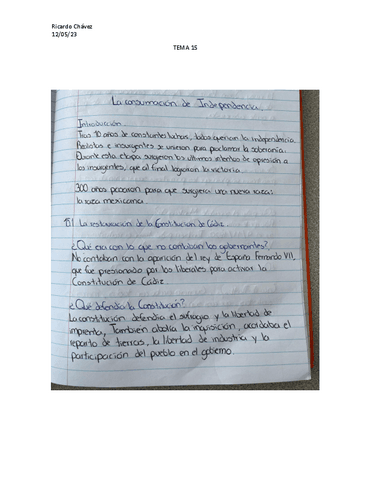 Ricardo Chávez
12/05/23
TEMA 15
La consumación de Independencia.
Introducción
Tras 10 años de constantes luchas, todos querian la independencia.
Realistas e insurgentes se unieron para proclamar la soberanía.
Durante esta etapa surgieron los ultimos intentos de opresión a
los insurgentes, que al final lograron la victoria.
300 años pasaron para que surgiera una nueva raza:
la raza mexicana.
15.1 La restauración de la Constitucion de Cádiz.
¿Qué era con lo que no contaban los gobernantes?
No contaban con la aparición del rey de España Fernando VII,
que fue presionado por los liberales para activar la
Constitución de Cádiz.
¿Qué defendía la Constitución?
La constitución defendía el sufragio y la libertad de
imprenta, También abolía la inquisición, acordaba el
reparto de tierras, la libertad de industria y la
participación del pueblo en el gobierno.